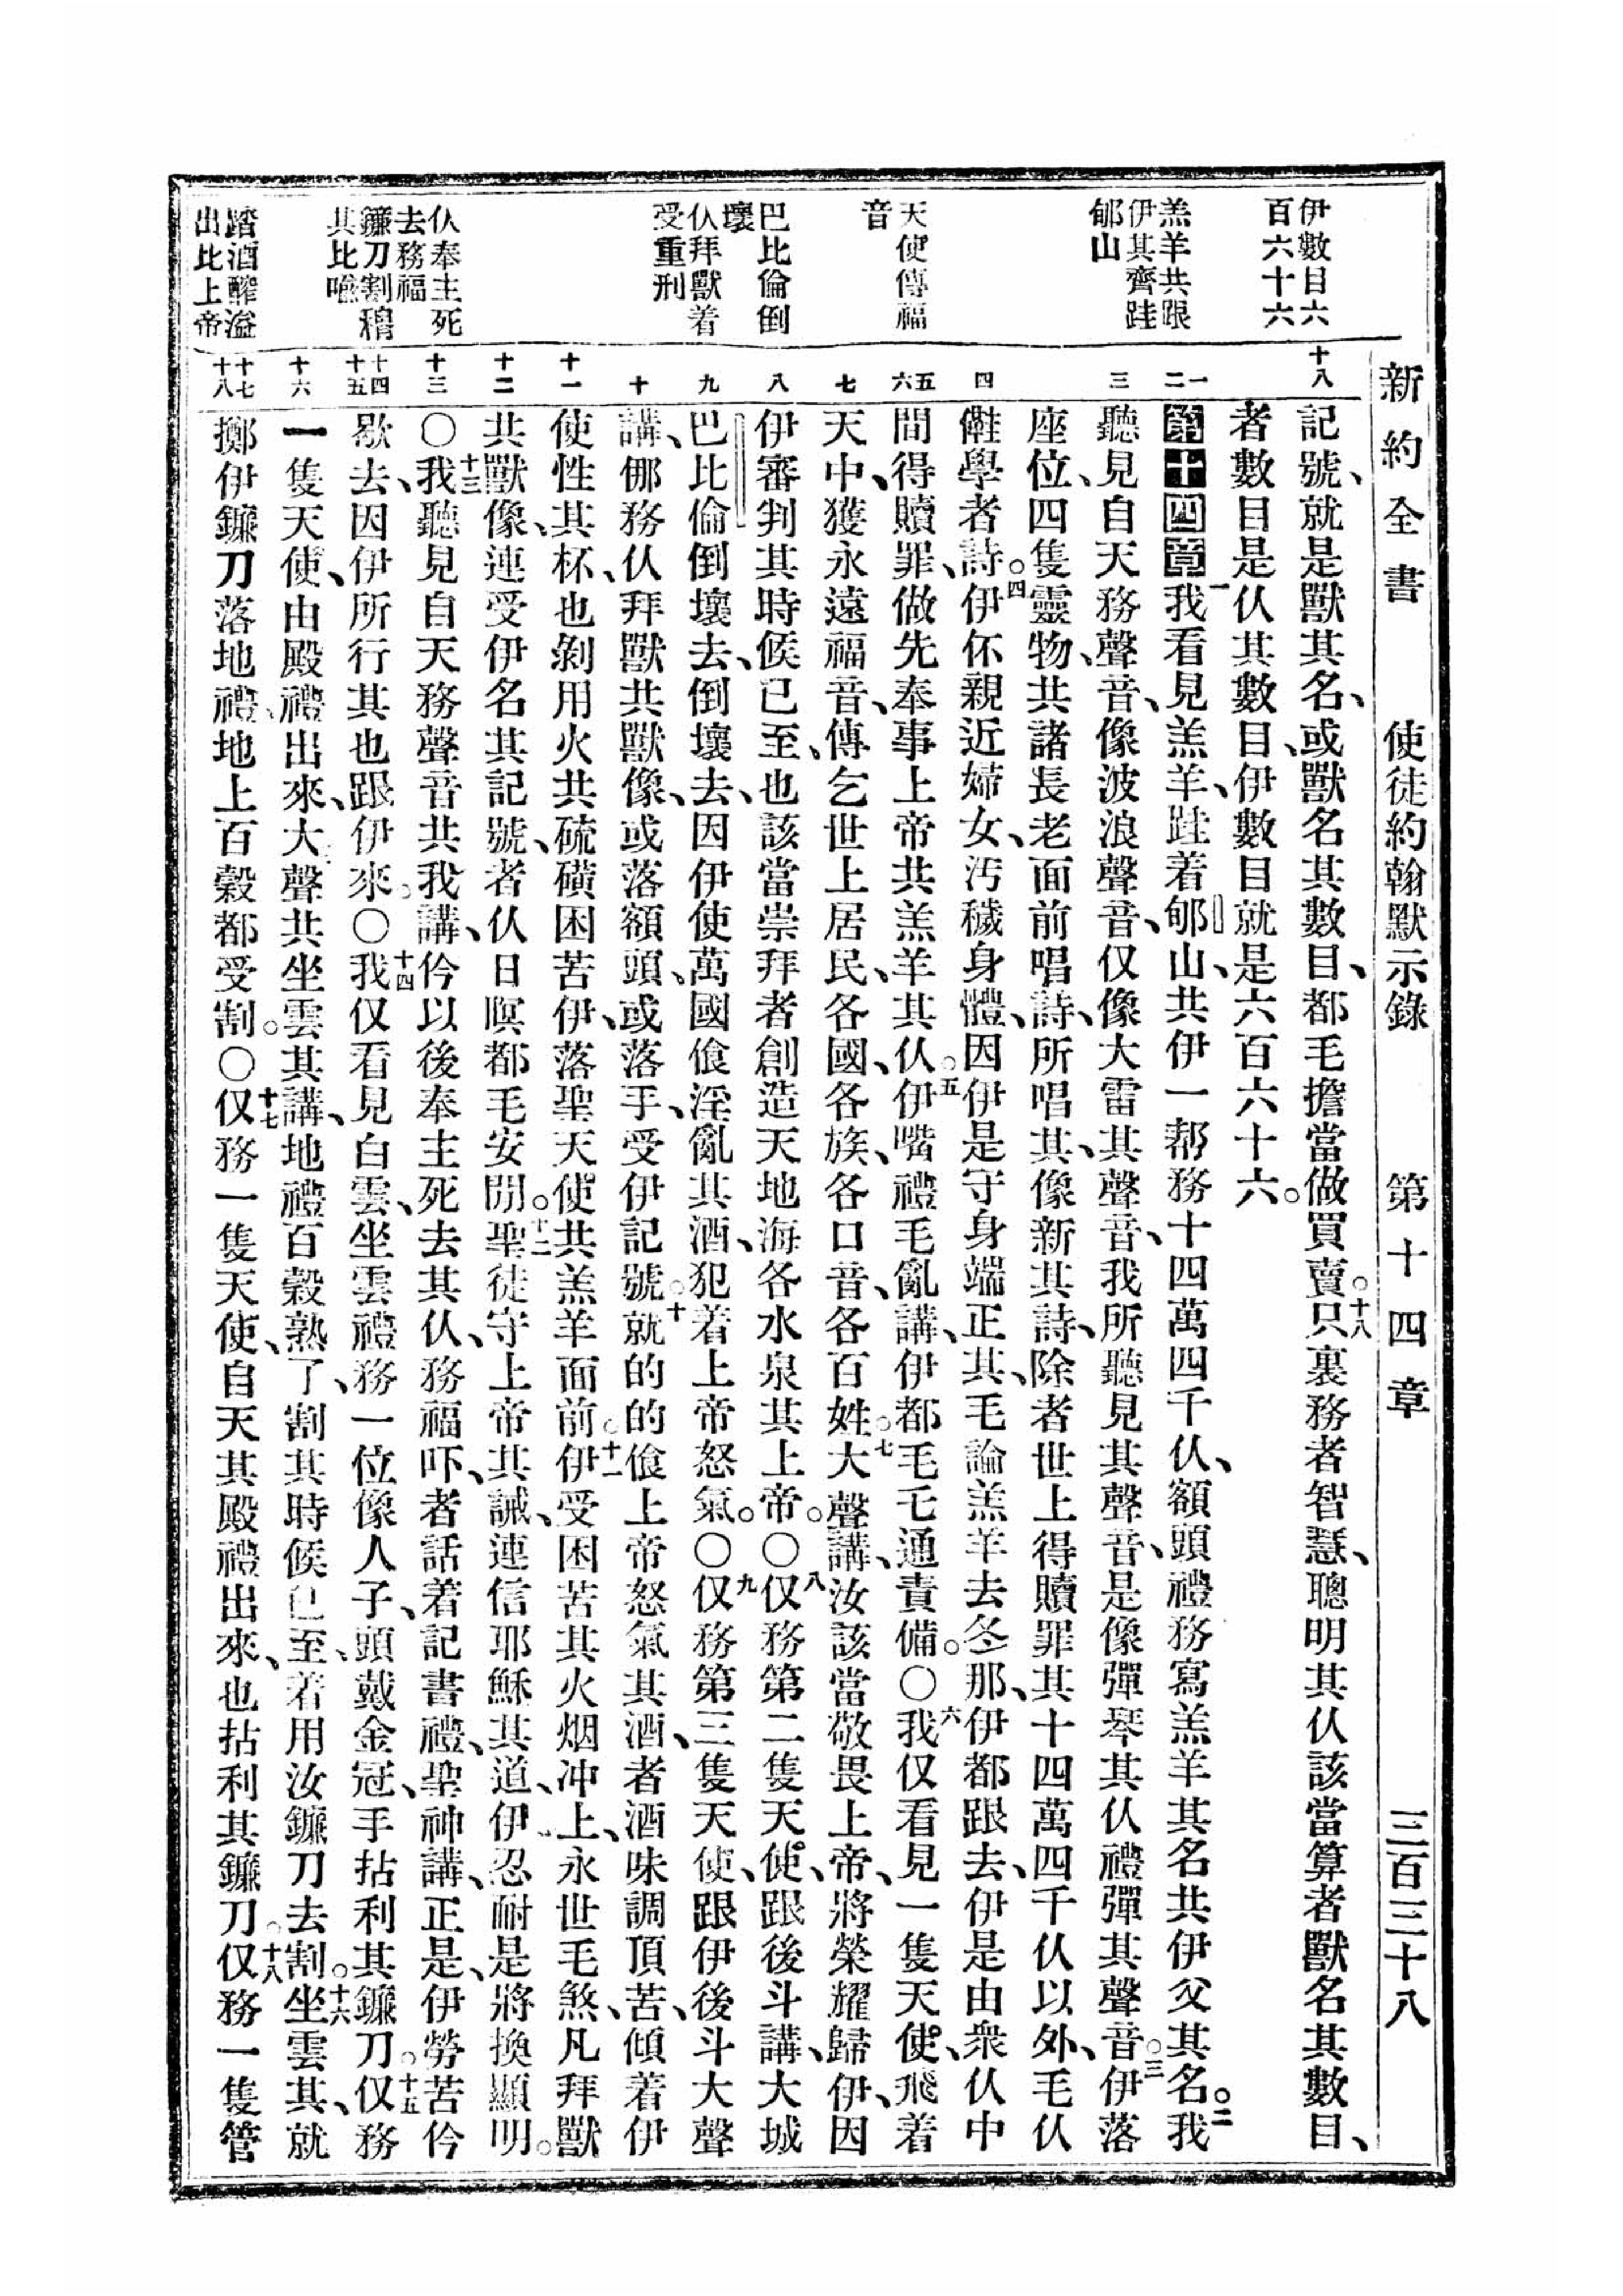 新約全書　使徒約翰默示錄　第十四章　三百三十八
伊數目六
百六十六
羔羊共跟
伊其齊跬
郇山
天使傳福
音
巴比倫倒
壞
仈拜獸着
受重刑
仈奉主死
去務福
鐮刀割穡
其比喻
踏酒醡溢
出比上帝
十八
一
二
三
四
五
六
七
八
九
十
十一
十二
十三
十四
十五
十六
十七
十八
記號、就是獸其名、或獸名其數目、都毛擔當做買賣。十八只裏務者智慧、聰明其仈該當算者獸名其數目、
者數目是仈其數目、伊數目就是六百六十六。
第十四章一我看見羔羊、跬着郇山、共伊一幇務十四萬四千仈、額頭禮務寫羔羊其名共伊父其名。二我
聽見自天務聲音、像波浪聲音、仅像大雷其聲音、我所聽見其聲音、是像彈琴其仈禮彈其聲音。三伊落
座位、四隻靈物、共諸長老面前唱詩、所唱其、像新其詩、除者世上得贖罪其十四萬四千仈以外、毛仈
㑚學者詩。四伊伓親近婦女、汚穢身體、因伊是守身端正其、毛論羔羊去冬那、伊都跟去、伊是由衆仈中
間得贖罪、做先奉事上帝共羔羊其仈。五伊嘴禮毛亂講、伊都毛乇通責備。〇六我仅看見一隻天使、飛着
天中、獲永遠福音、傳乞世上居民、各國、各族、各口音、各百姓。七大聲講、汝該當敬畏上帝、將榮耀歸伊、因
伊審判其時候已至、也該當崇拜者創造天地海各水泉其上帝。〇八仅務第二隻天使、跟後斗講、大城
巴比倫倒壞去、倒壞去、因伊使萬國飡淫亂其酒、犯着上帝怒氣。〇九仅務第三隻天使、跟伊後斗大聲
講、㑚務仈拜獸共獸像、或落額頭、或落手、受伊記號。十就的的飡上帝怒氣其酒、者酒味調頂苦、傾着伊
使性其杯、也剝用火共硫磺困苦伊、落聖天使共羔羊面前。十一伊受困苦其火烟冲上、永世毛煞、凡拜獸
共獸像、連受伊名其記號、者仈日暝都毛安閒。十二聖徒守上帝其誡、連信耶穌其道、伊忍耐是將換顯明。
〇十三我聽見自天務聲音共我講、仱以後奉主死去其仈、務福吓、者話着記書禮、聖神講、正是、伊勞苦仱
歇去、因伊所行其也跟伊來。〇十四我仅看見白雲、坐雲禮務一位像人子、頭戴金冠、手拈利其鐮刀。十五仅務
一隻天使、由殿禮出來、大聲共坐雲其講、地禮百穀熟了、割其時候已至、着用汝鐮刀去割。十六坐雲其、就
擲伊鐮刀落地禮、地上百穀都受割。〇十七仅務一隻天使、自天其殿禮出來、也拈利其鐮刀。十八仅務一隻管